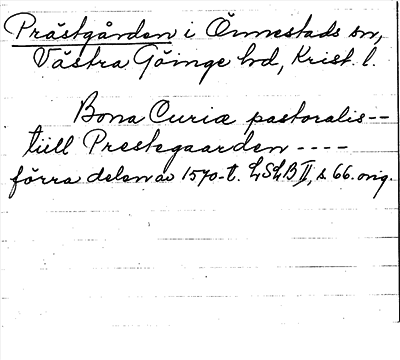 Prästgården i Önnestads sn,
Västra Göinge hd, Krist. l.
Bona Curiæ pastoralis--
tiill Prestegaarden ----
förra delen av 1570-t. LSLB II, s. 66. orig.